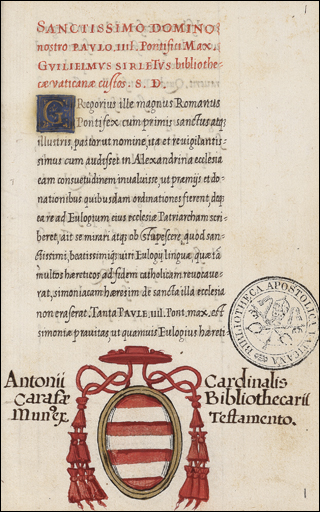 SANCTISSIMO DOMINO
nostro PAVLO .IIII. Pontifici Max.
GVILIELMVS SIRLETVS bibliothe-
cæ vaticanæ custos. S. D.
GRegorius ille magnus Romanus
Pontifex cum primis sanctus atq;
illustris, pastor ut nomine, ita re uigilantis-
simus cum audisset in Alexandrina ecclesia
eam consuetudinem inualuisse, ut premijs et do-
nationibus quibusdam ordinationes fierent, deq;
ea re ad Eulogium eius ecclesiæ Patriarcham scri-
beret, ait se mirari atq; ob stupescere, quod san-
ctissimi, beatissimiq; uiri Eulogij lingua, quæ tã
multos hæreticos ad fidem catholicam reuocaue-
rat, simoniacam hæresim de sancta illa ecclesia
non eraserat. Tanta PAVLE .IIII. Pont. max. est
simoniæ prauitas, ut quamuis Eulogius hæreti-
BIBLIOTHECA APOSTOLICA VATICANA
Antonii Cardinalis
Carafæ Bibliothecarii
Munere Testamento.